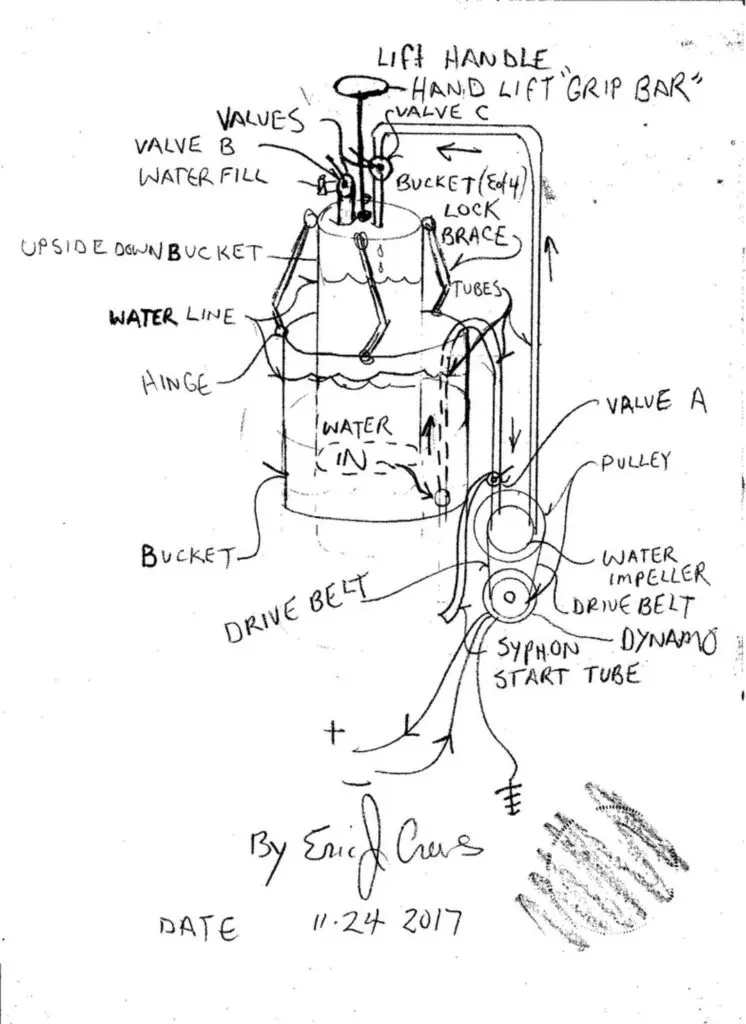 LIFT HANDLE
HAND LIFT "GRIP BAR"
VALVES
VALVE C
VALVE B
WATER FILL
BUCKET (E of 4)
LOCK
BRACE
UPSIDE DOWN BUCKET
TUBES
WATER LINE
HINGE
VALVE A
WATER
IN
PULLEY
BUCKET
WATER
IMPELLER
DRIVE BELT
DRIVE BELT
DYNAMO
SYPHON
START TUBE
+
−
By Eric J
DATE 11·24 2017